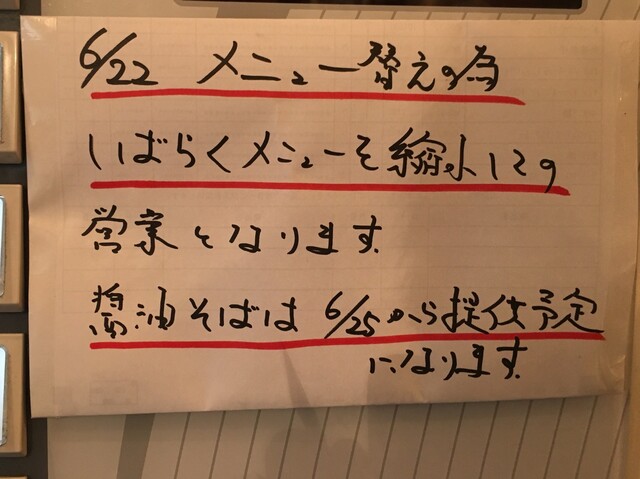 6/22 メニュー替えの為
しばらくメニューを縮小しての
営業となります
醤油そばは 6/25から提供予定
になります